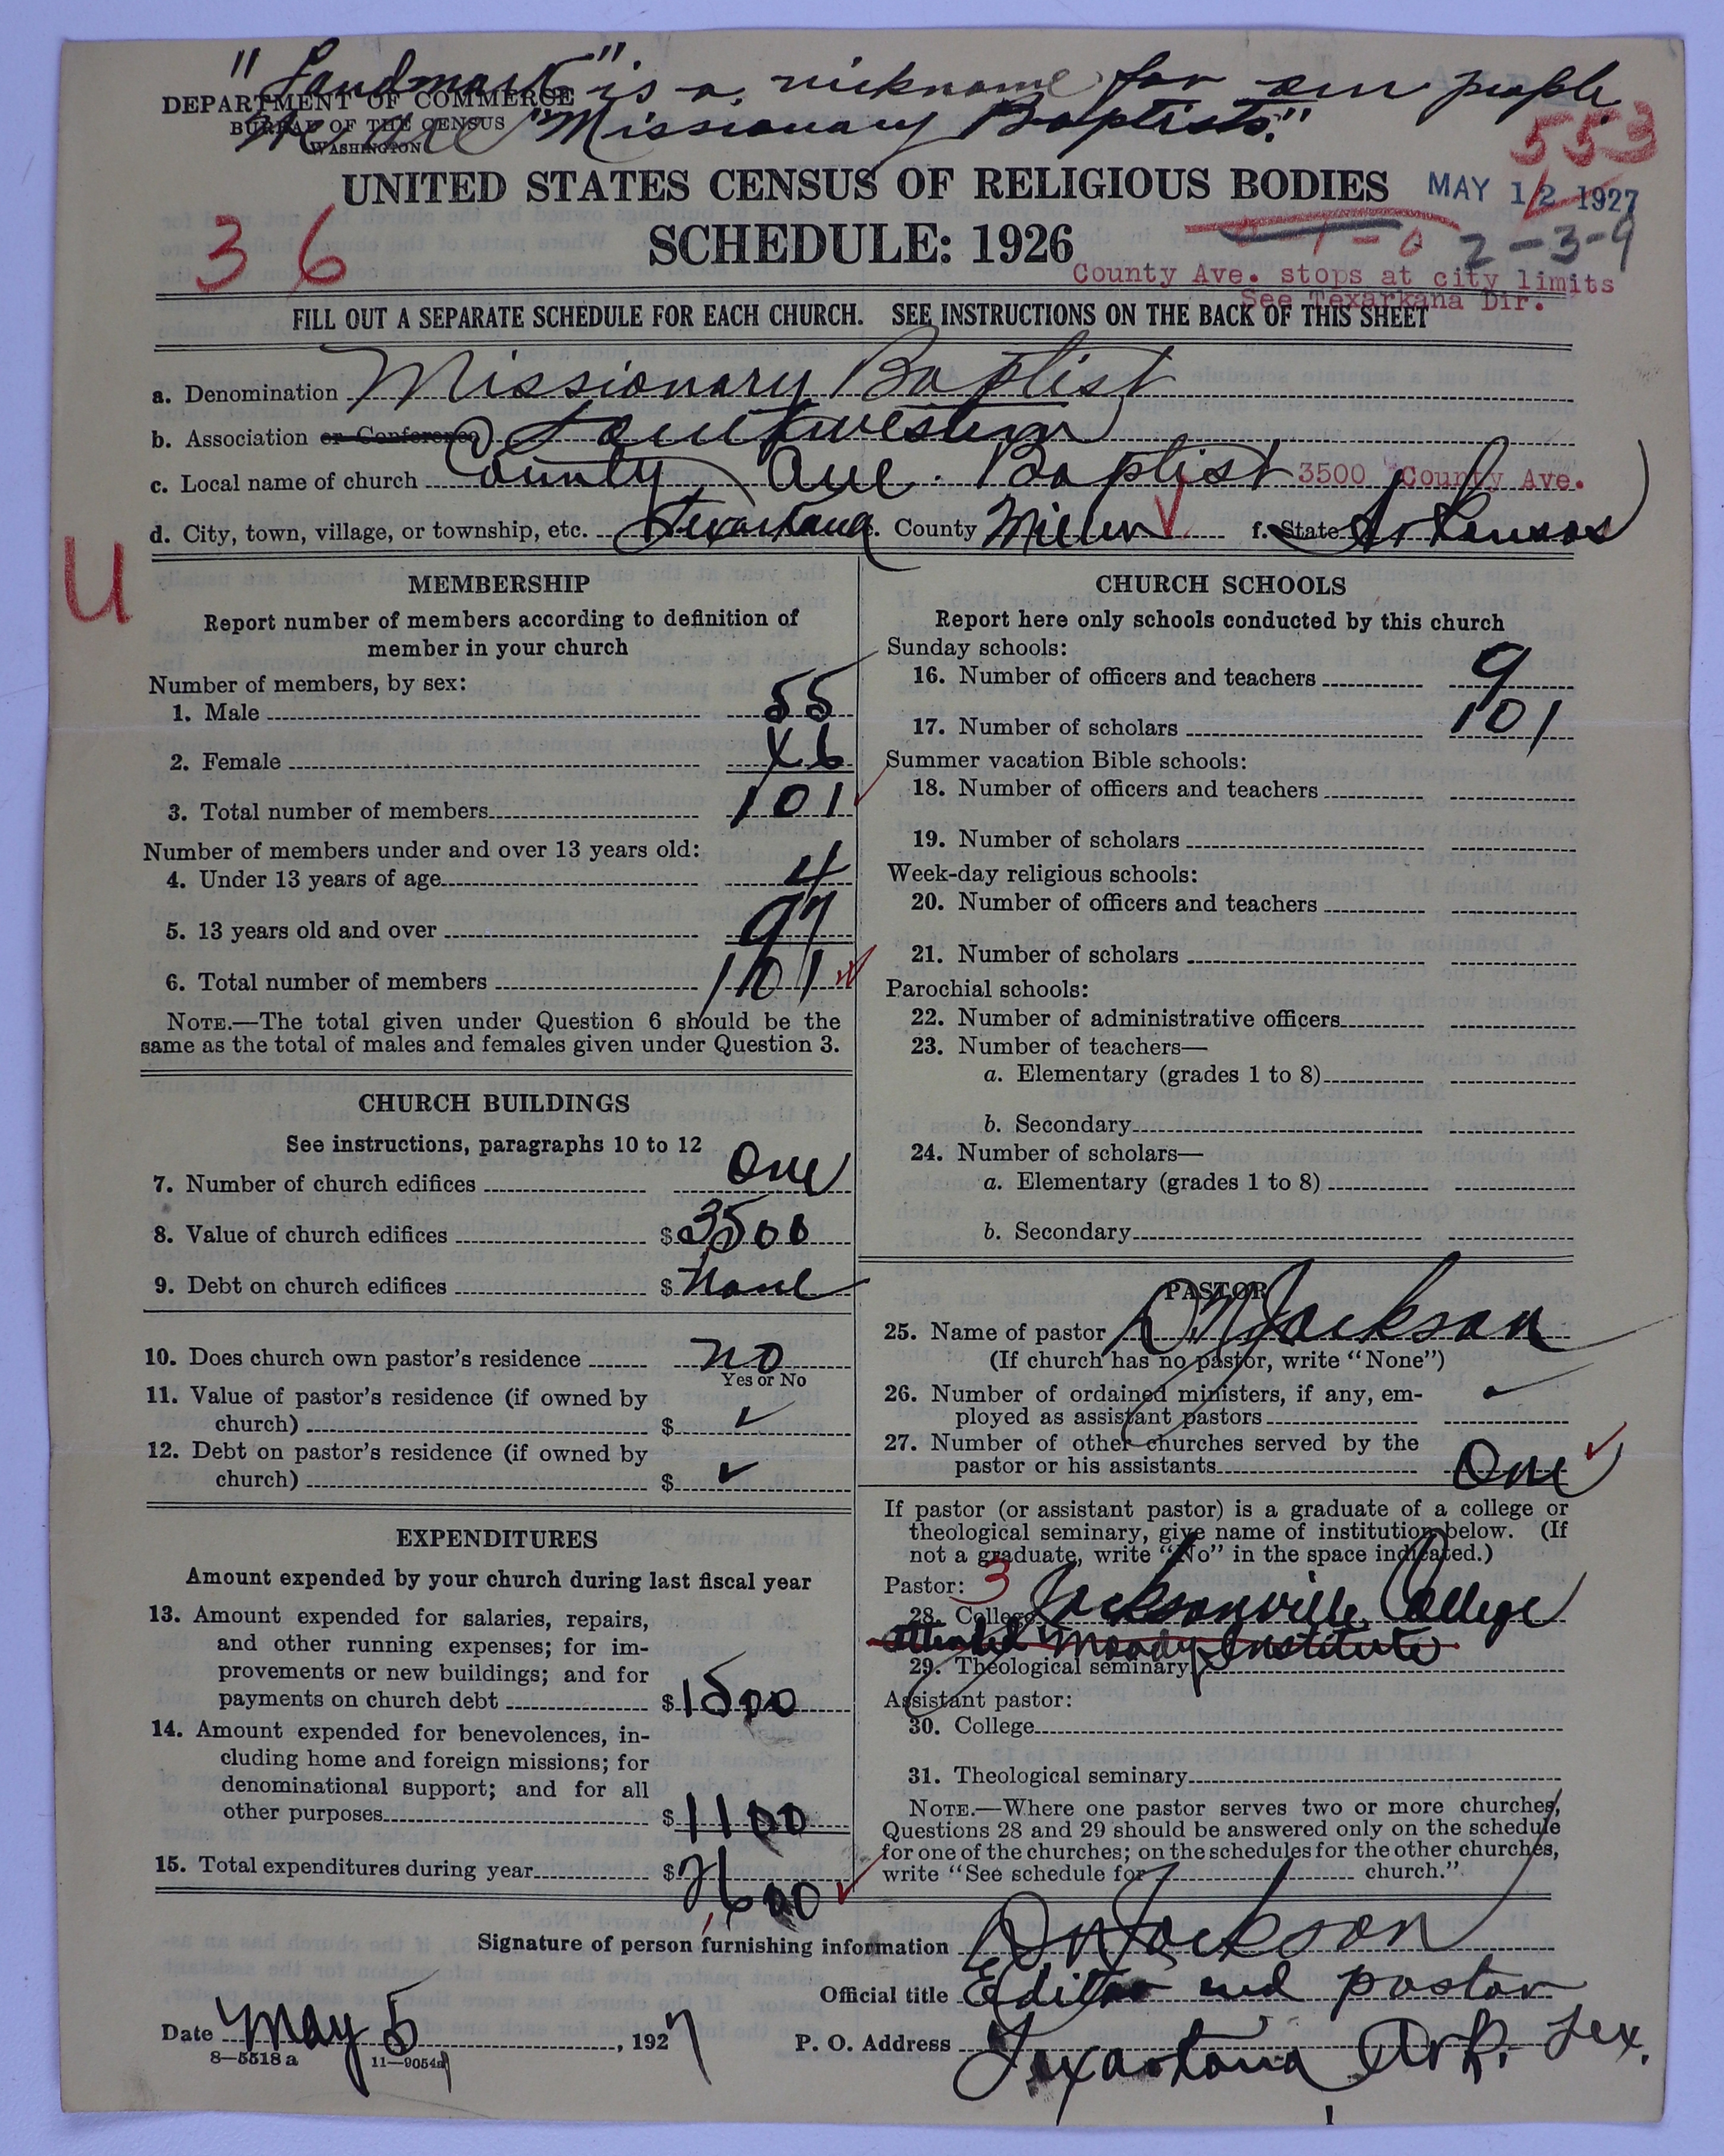 "Landmark" is a nickname for our people.
DEPARTMENT OF COMMERCE
We are "Missionary Baptists."
BUREAU OF THE CENSUS
WASHINGTON
553
UNITED STATES CENSUS OF RELIGIOUS BODIES
MAY 12 1927
36
SCHEDULE: 1926
1-0 2-3-9
County Ave. stops at city limits
See Texarkana Dir.
FILL OUT A SEPARATE SCHEDULE FOR EACH CHURCH. SEE INSTRUCTIONS ON THE BACK OF THIS SHEET
a. Denomination Missionary Baptist
b. Association or Conference Southwestern
c. Local name of church County Ave. Baptist 3500 County Ave.
d. City, town, village, or township, etc. Texarkana e. County Miller f. State Arkansas
U
MEMBERSHIP
Report number of members according to definition of
member in your church
Number of members, by sex:
1. Male 55
2. Female 46
3. Total number of members 101
Number of members under and over 13 years old:
4. Under 13 years of age 4
5. 13 years old and over 97
6. Total number of members 101
NOTE.—The total given under Question 6 should be the
same as the total of males and females given under Question 3.
CHURCH BUILDINGS
See instructions, paragraphs 10 to 12
7. Number of church edifices One
8. Value of church edifices $3500
9. Debt on church edifices $ None
10. Does church own pastor's residence No
Yes or No
11. Value of pastor's residence (if owned by
church) $ ✓
12. Debt on pastor's residence (if owned by
church) $ ✓
EXPENDITURES
Amount expended by your church during last fiscal year
13. Amount expended for salaries, repairs,
and other running expenses; for im-
provements or new buildings; and for
payments on church debt $1500
14. Amount expended for benevolences, in-
cluding home and foreign missions; for
denominational support; and for all
other purposes $1100
15. Total expenditures during year $2,600
CHURCH SCHOOLS
Report here only schools conducted by this church
Sunday schools:
16. Number of officers and teachers 9
17. Number of scholars 101
Summer vacation Bible schools:
18. Number of officers and teachers
19. Number of scholars
Week-day religious schools:
20. Number of officers and teachers
21. Number of scholars
Parochial schools:
22. Number of administrative officers
23. Number of teachers—
a. Elementary (grades 1 to 8)
b. Secondary
24. Number of scholars—
a. Elementary (grades 1 to 8)
b. Secondary
PASTOR
25. Name of pastor D N Jackson
(If church has no pastor, write "None")
26. Number of ordained ministers, if any, em-
ployed as assistant pastors ✓
27. Number of other churches served by the
pastor or his assistants One
If pastor (or assistant pastor) is a graduate of a college or
theological seminary, give name of institution below. (If
not a graduate, write "No" in the space indicated.)
Pastor: 3
28. College Jacksonville College
attended Moody Institute
29. Theological seminary
Assistant pastor:
30. College
31. Theological seminary
NOTE.—Where one pastor serves two or more churches,
Questions 28 and 29 should be answered only on the schedule
for one of the churches; on the schedules for the other churches,
write "See schedule for church."
Signature of person furnishing information D N Jackson
Official title Editor and pastor
Date May 5, 1927
P. O. Address Texarkana Ark. Tex.
8—5518 a 11—9054a